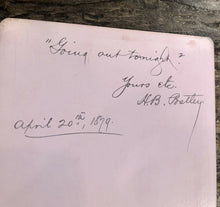 "Going out tonight?"
Yours etc.
H.B. Pratley
April 20th, 1899.